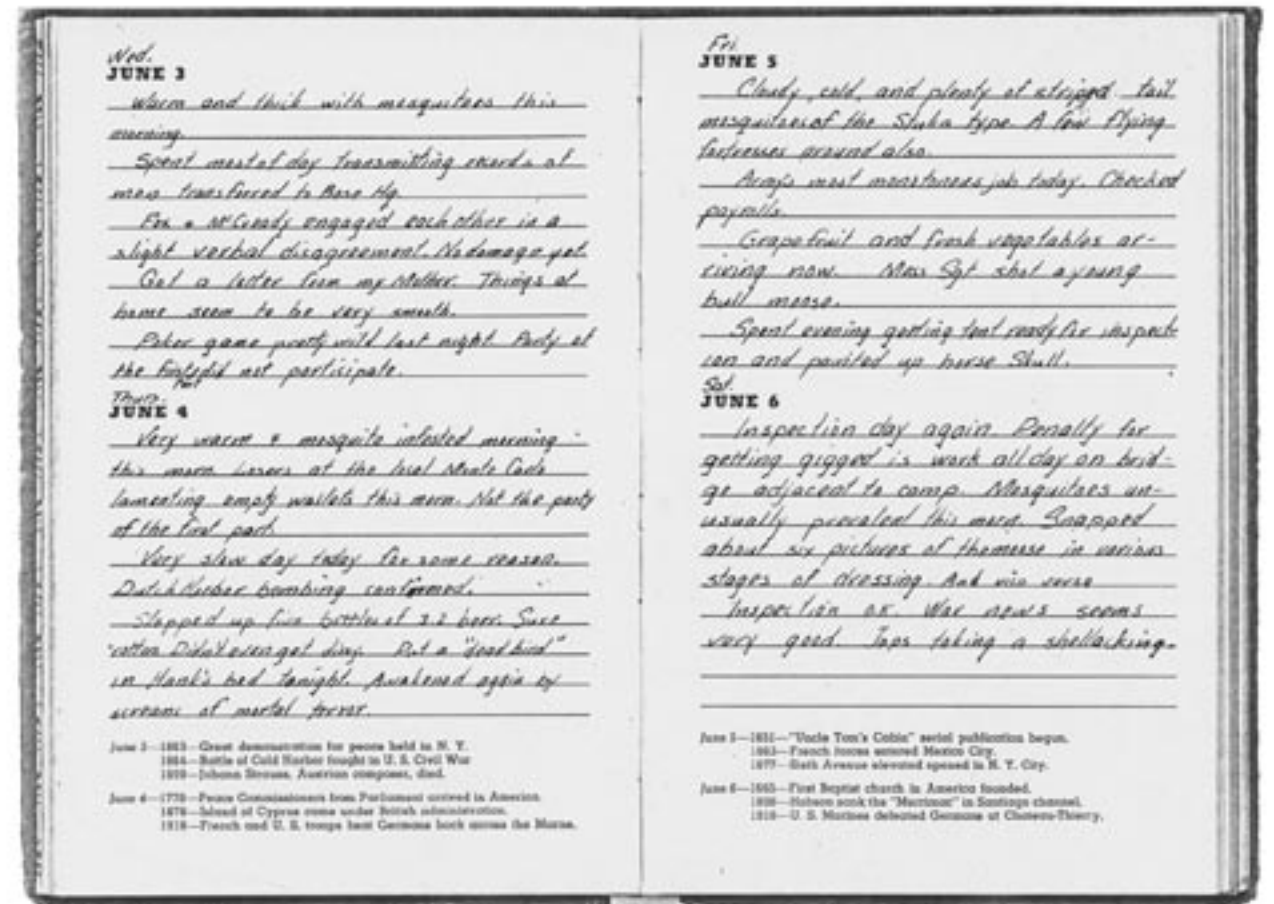 Wed.
JUNE 3
Warm and thick with mosquitoes this
morning.
Spent most of day transmitting records of
men transferred to Base Hq.
Fox & McCready engaged each other in a
slight verbal disagreement. No damage yet.
Got a letter from my Mother. Things at
home seem to be very smooth.
Poker game pretty wild last night. Party of
the first part did not participate.
Thurs.
JUNE 4
Very warm & mosquito infested morning
this morn. Losers at the local Monte Carlo
lamenting empty wallets this morn. Not the party
of the first part.
Very slow day today for some reason.
Dutch Harbor bombing confirmed.
Slopped up five bottles of 3.2 beer. Sure
rotten. Didn't even get dizzy. Put a "dead bird"
in Hank's bed tonight. Awakened again by
screams of mortal terror.
June 3—1863—Great demonstration for peace held in N. Y.
1864—Battle of Cold Harbor fought in U. S. Civil War
1899—Johann Strauss, Austrian composer, died.
June 4—1778—Peace Commissioners from Parliament arrived in America.
1878—Island of Cyprus came under British administration.
1918—French and U. S. troops beat Germans back across the Marne.
Fri.
JUNE 5
Cloudy, cold, and plenty of striped tail
mosquitoes of the Stuka type. A few flying
fortresses around also.
Army's most monotonous job today. Checked
payrolls.
Grapefruit and fresh vegetables ar-
riving now. Mess Sgt shot a young
bull moose.
Spent evening getting tent ready for inspect-
ion and painted up horse skull.
Sat.
JUNE 6
Inspection day again. Penalty for
getting gigged is work all day on brid-
ge adjacent to camp. Mosquitoes un-
usually prevalent this morn. Snapped
about six pictures of the moose in various
stages of dressing. And vice versa
Inspection O.K. War news seems
very good. Japs taking a shellacking.
June 5—1851—"Uncle Tom's Cabin" serial publication begun.
1863—French forces entered Mexico City.
1877—Sixth Avenue elevated opened in N. Y. City.
June 6—1665—First Baptist church in America founded.
1898—Hobson sank the "Merrimac" in Santiago channel.
1918—U. S. Marines defeated Germans at Chateau-Thierry.